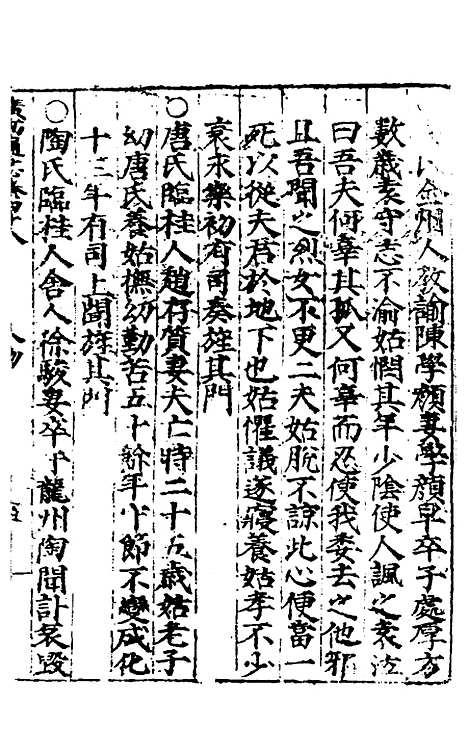 全州人教諭陳學顏妻學顏早卒子處厚方
數歲袁守志不渝姑憫其年少陰使人諷之袁泣
曰吾夫何辜其孤又何辜而忍使我委去之他邪
且吾聞之烈女不更二夫姑脫不諒此心便當一
死以從夫君於地下也姑懼議遂寢養姑孝不少
衰永樂初有司奏旌其門
○唐氏臨桂人趙存質妻夫亡時二十九歲姑老子
幼唐氏養姑撫幼勤苦五十餘年卞節不變成化
十三年有司上聞旌其門
○陶氏臨桂人舍人徐駿妻卒于龍州陶聞訃哀毀
廣西通志卷四十八
人物